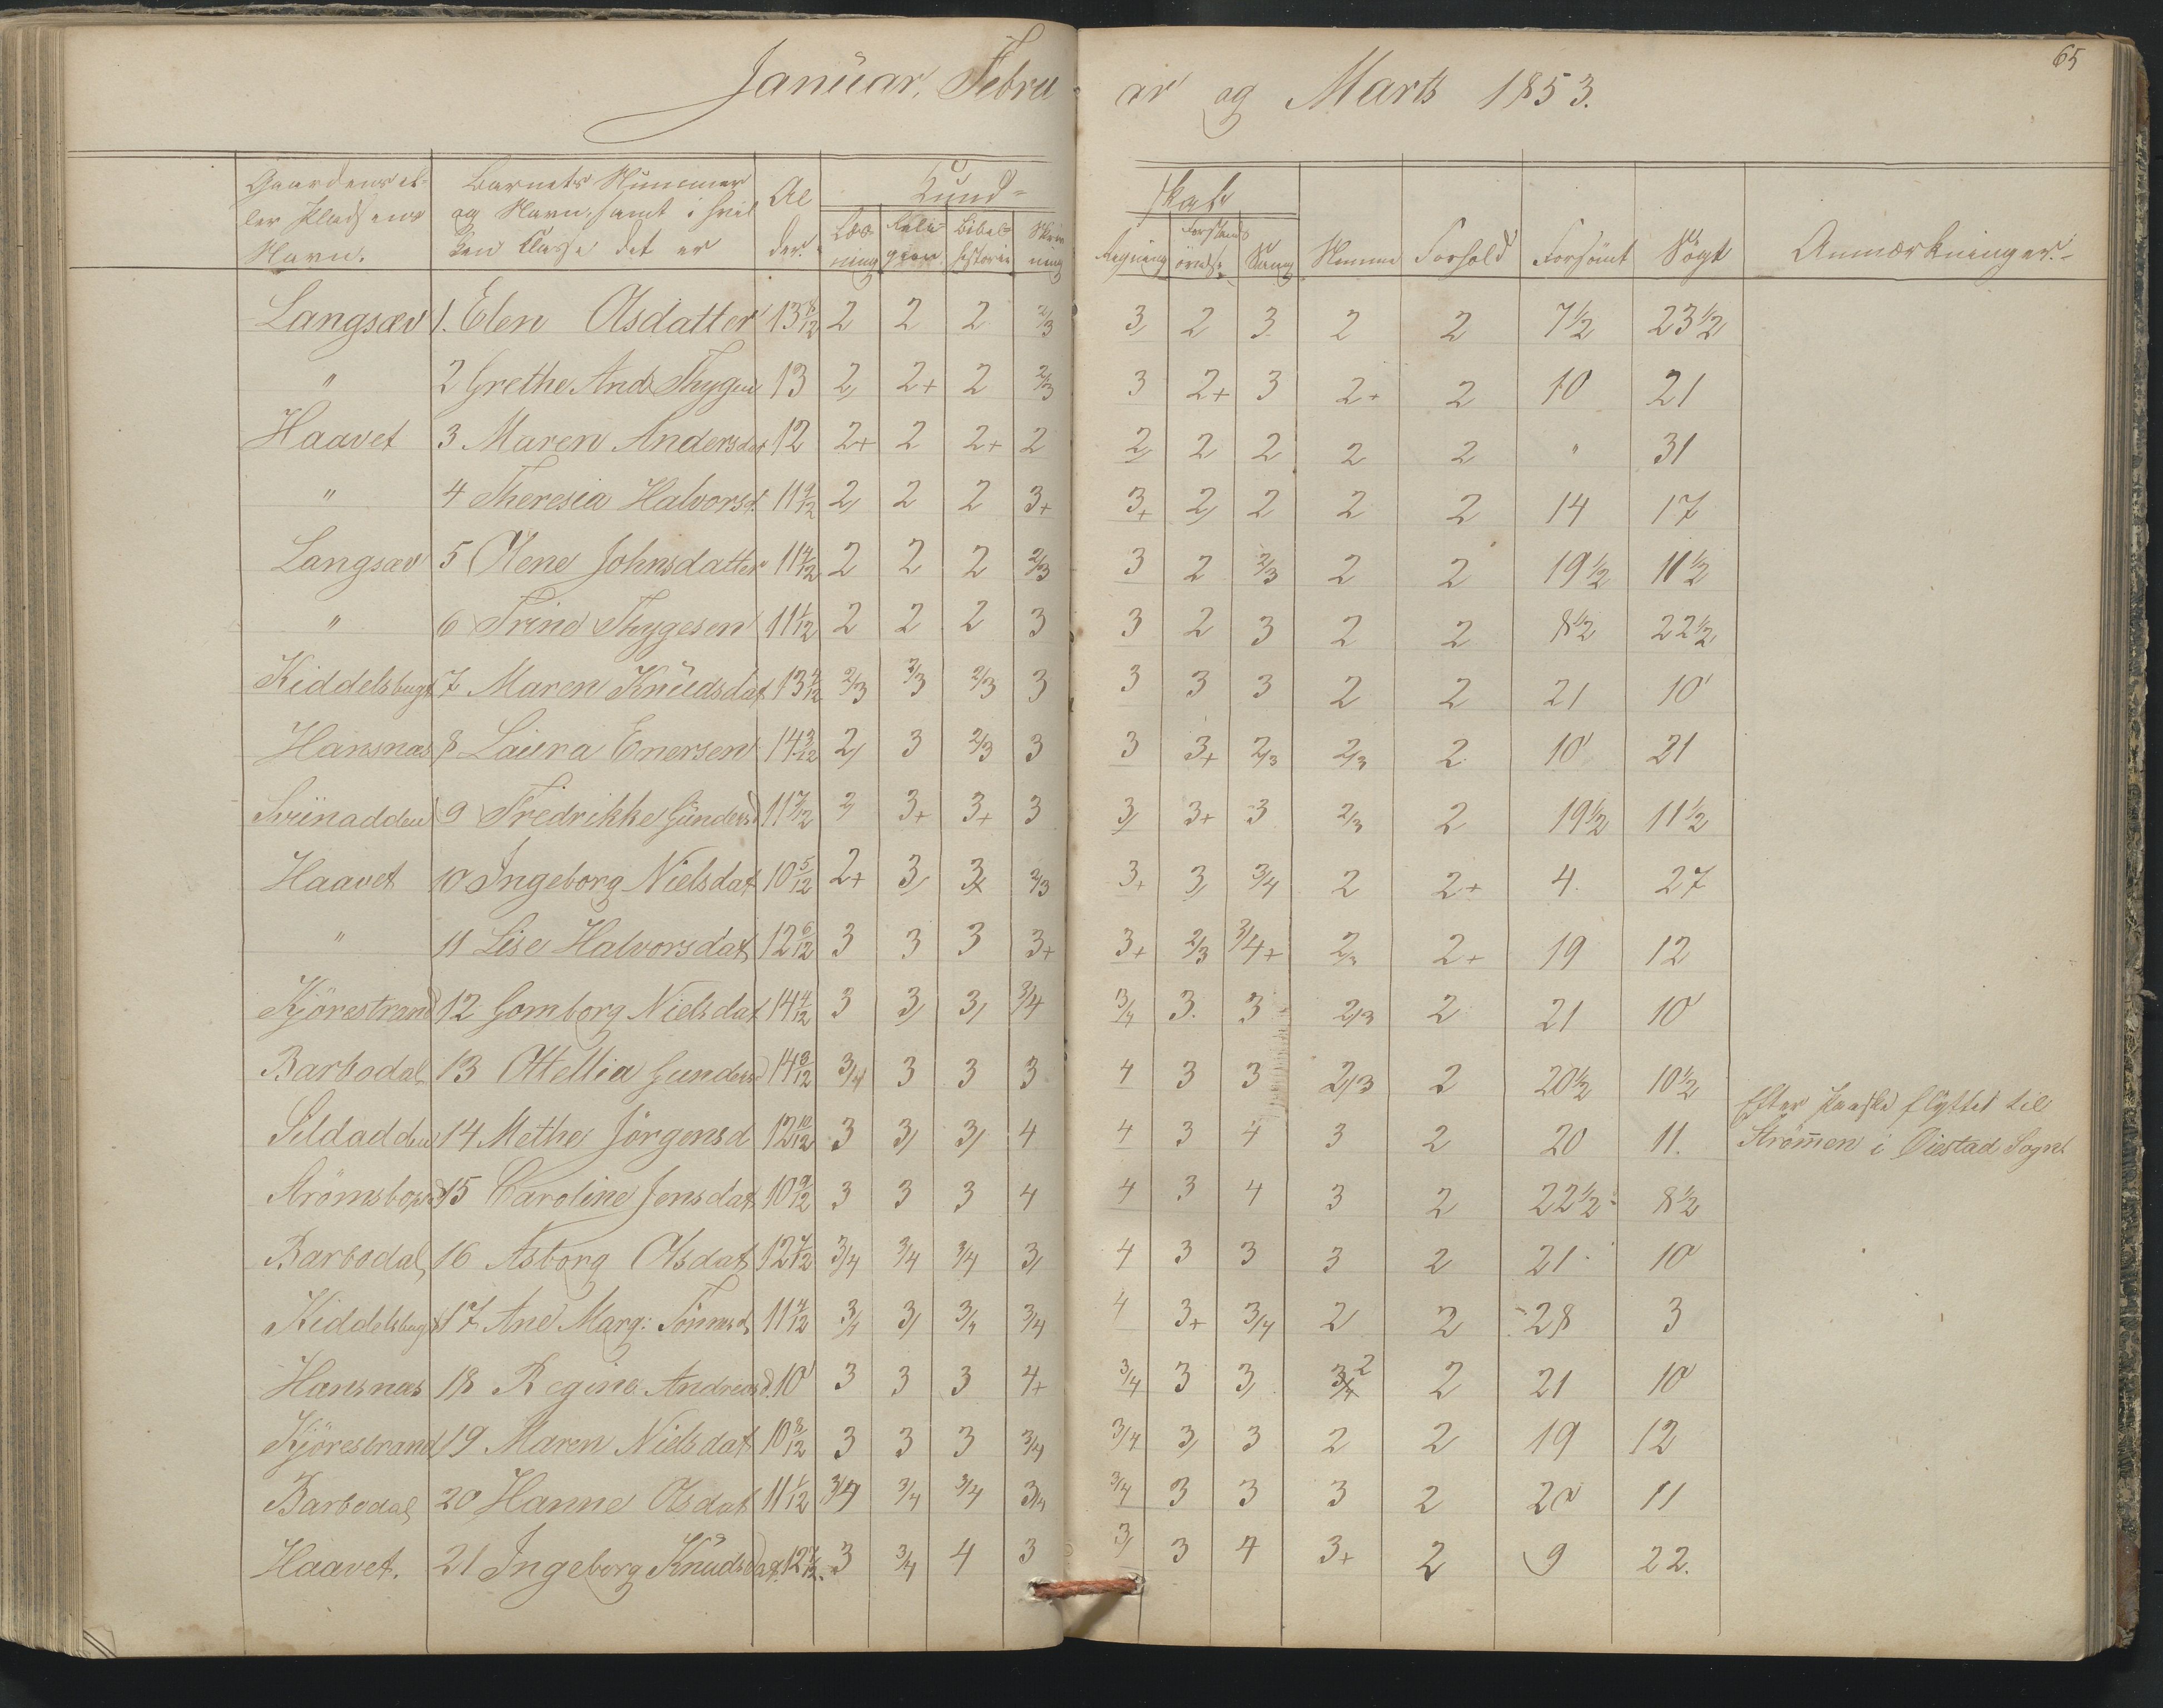 65
Januar, Februar og Marts 1853.
Gaardens el- Barnets Nummer Al Kund- skab
ler Pladsens og Navn, samt i hvil der. Læs- Reli- Bibel- Skriv Regning Forstands Sang Nemme Forhold Forsömt Sögt Anmærkninger.
Navn. ken Classe det er ning gion historie ning övelse
Langsæv 1. Elen Olsdatter 13 8/12 2 2 2 2/3 3, 2 3 2 2 7 1/2 23 1/2
" 2 Grethe And Thygesen 13 2, 2+ 2 2/3 3 2+ 3 2+ 2 10 21
Haavet 3 Maren Andersdat 12 2+ 2 2+ 2 2, 2 2 2 2 " 31
" 4 Theresia Halvorsd. 11 9/12 2, 2 2 3+ 3+ 2, 2 2 2 14 17
Langsæv 5 Olene Johnsdatter 11 4/12 2 2 2 2/3 3 2 2/3 2 2 19 1/2 11 1/2
" 6 Trine Thygesen 11 1/12 2 2 2 3 3 2 3 2 2 8 1/2 22 1/2
Kiddelsbugt 7 Maren Knüdsdat 13 4/12 2/3 2/3 2/3 3 3 3 3 2 2 21 10
Hansnæs 8 Laura Enersen 14 3/12 2, 3 2/3 3 3 3+ 2/3 2/3 2 10 21
Sviinodden 9 Fredrikke Gundersd 11 7/12 3+ 3+ 3 3, 3+ 3 2/3 2 19 1/2 11 1/2
Haavet 10 Ingeborg Nielsdat 10 5/12 2+ 3, 3+ 2/3 3+ 3, 3/4 2 2+ 4. 27
" 11 Lise Halvorsdat 12 6/12 3 3 3 3+ 3+ 2/3 3/4+ 2/3 2+ 19 12
Kjörestrand 12 Gomborg Nielsdat 14 4/12 3 3, 3, 3/4 3/4 3. 3 2/3 2 21 10
Barbodal 13 Otellia Gundersd 14 8/12 3/4 3 3 3 4 3 3 2/3 2 20 1/2 10 1/2
Sildodden 14 Methe Jörgensd 12 10/12 3 3, 3, 4 4 3 4 3 2 20 11. Efter Paaske flyttet til
Strömmen i Öiestad Sogn
Strömsbo 15 Caroline Jensdat 10 9/12 3 3 3 4 4 3 4 3 2 22 1/2 8 1/2
Barbodal 16 Asborg Olsdat 12 7/12 3/4 3/4 3/4 3, 4 3 3 3 2 21 10
Kiddelsbugt 17 Ane Marg: Tönnesd 11 4/12 3/4 3, 3/4 3/4 4 3+ 3/4 2 2 28 3
Hansnæs 18 Regine Andreasd. 10 3 3 3 4+ 3/4 3 3, 2 2 21 10
Kjörestrand 19 Maren Nielsdat 10 8/12 3 3 3 3/4 3/4 3, 3 2 2 19 12
Barbodal 20 Hanne Olsdat 11 1/12 3/4 3/4 3/4 3/4 3/4 3 3 3 2 20 11
Haavet. 21 Ingeborg Knudsdat. 3 3/4 4 3 3, 3 4 3+ 2 9 22.